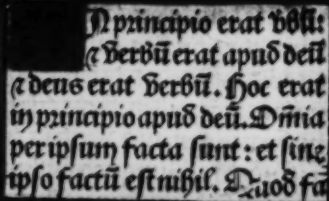 N principio erat v̄bū:
⁊ verbū erat apud deū
⁊ deus erat verbū. Hoc erat
in principio apud deū. Om̄ia
per ipsum facta sunt: et sine
ipso factū est nihil. Quod fa